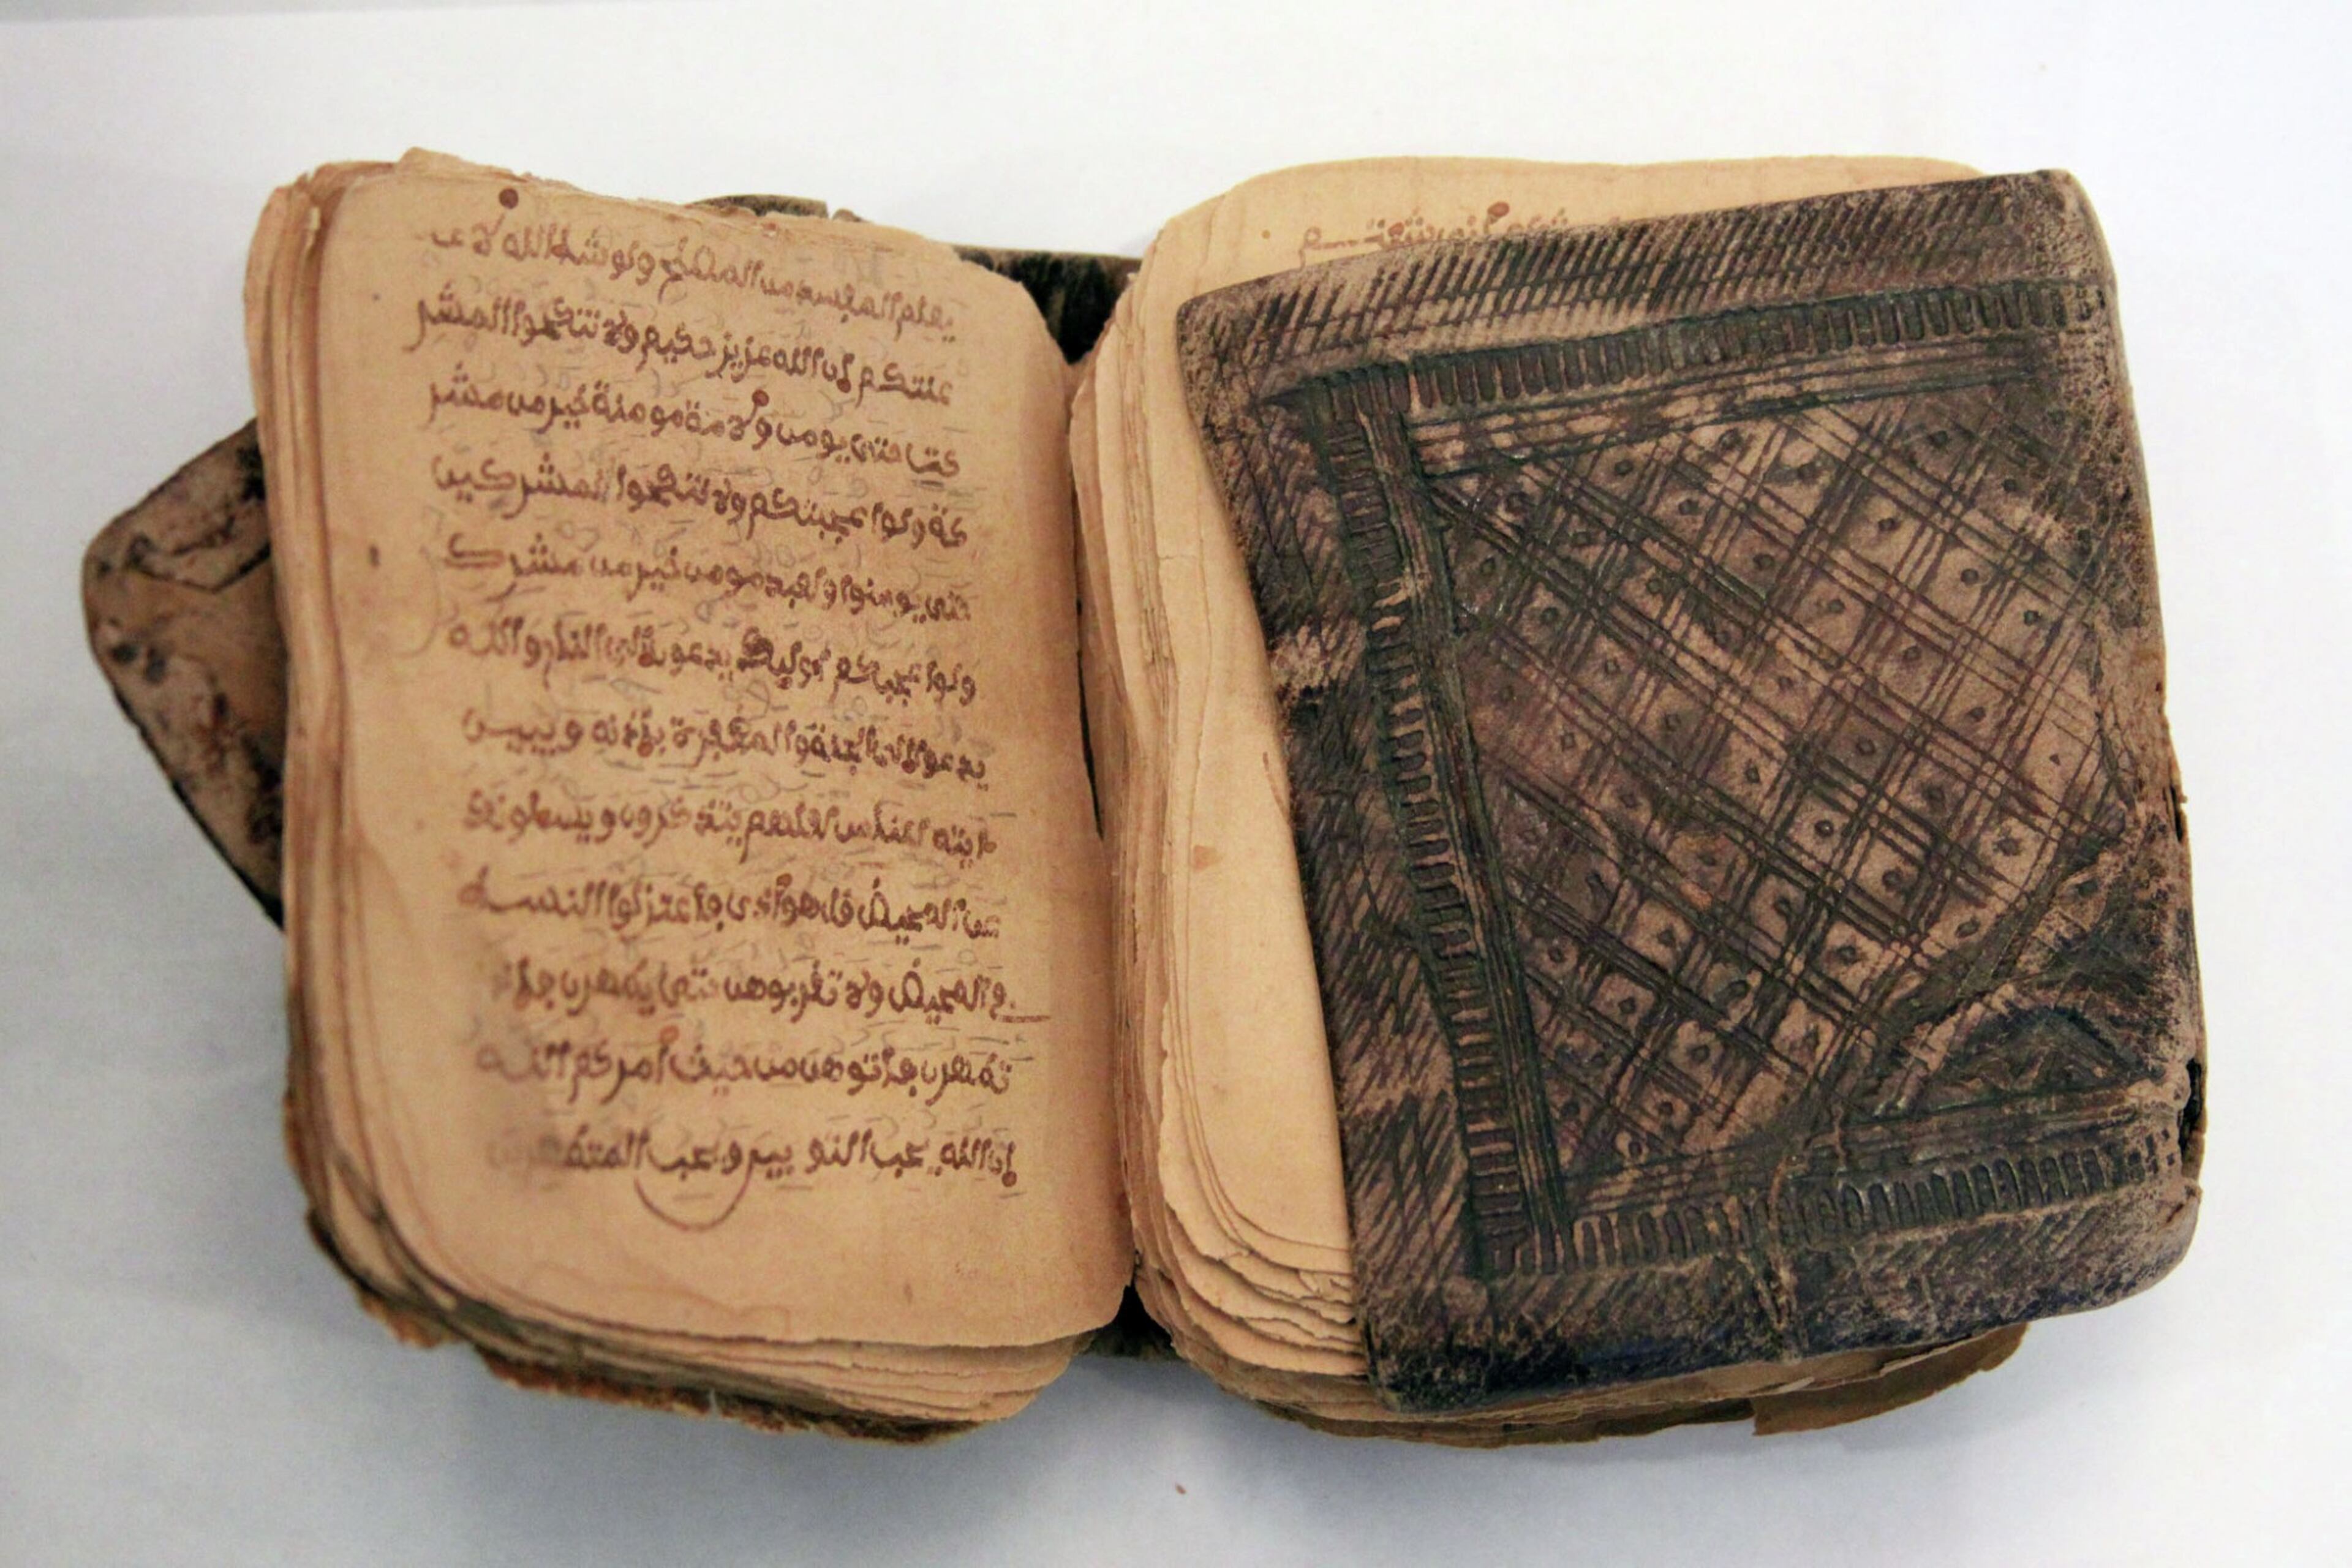 يعلم المفسد من المصلح ولو شاء الله لاع
عنتكم إن الله عزيز حكيم ولا تنكحوا المشر
كت حتى يومن ولامة مومنة خير من مشر
كة ولو اعجبتكم ولا تنكحوا المشركين
حتى يومنوا ولعبد مومن خير من مشرك
ولو اعجبكم اوليك يدعون الى النار والله
يدعوا الى الجنة والمغفرة بإذنه ويبين
ءايته للناس لعلهم يتذكرون ويسلونك
عن المحيض قل هو اذى فاعتزلوا النساء
في المحيض ولا تقربوهن حتى يطهرن فإذا
تطهرن فاتوهن من حيث امركم الله
إن الله يحب التوبين ويحب المتطهرين